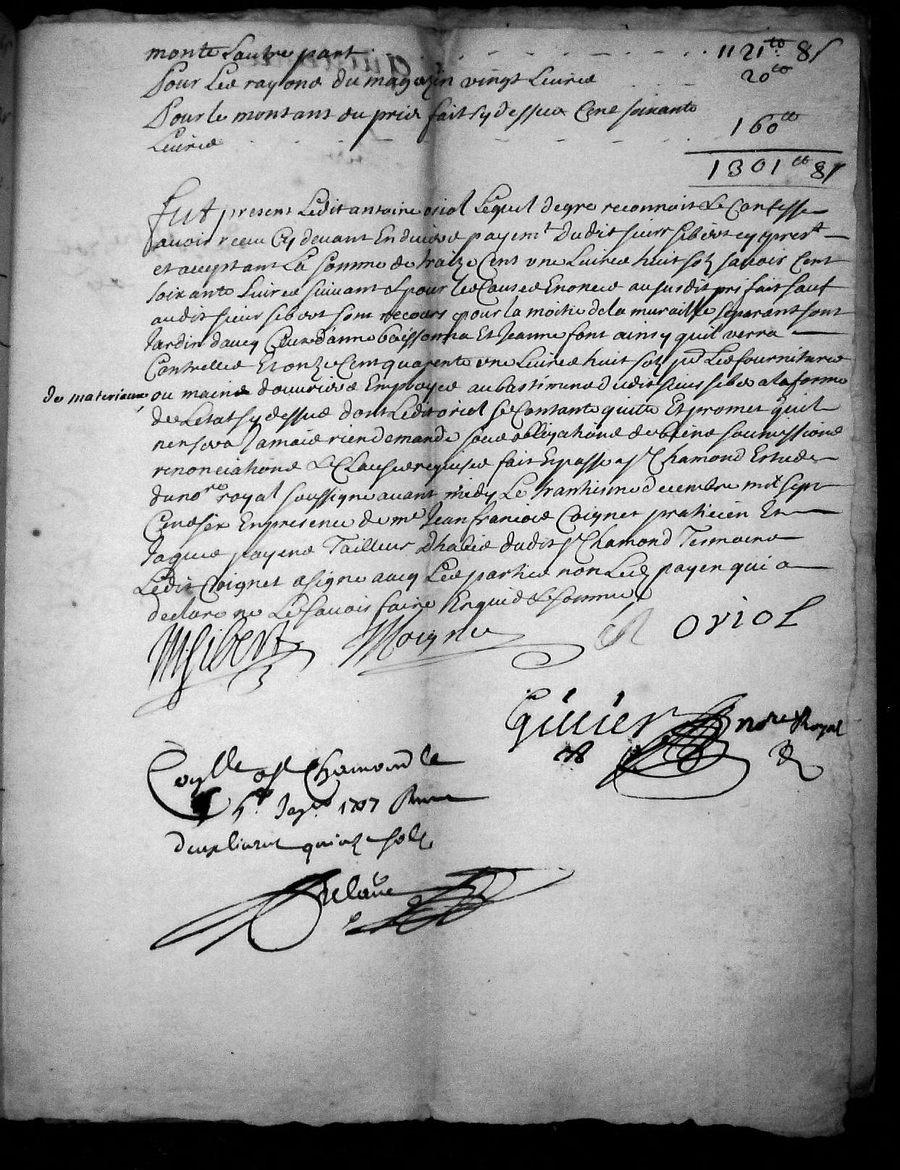 monte l'autre part . . . 1121 tt 8 s
Pour les rayons du magazin vingt livres 20 tt
Pour le montant du prix fait sy dessus cent soixante
livres . . . 160 tt
1301 tt 8 s
fut present ledit antoine oriol lequel de gre reconnoit & confesse
avoir receu cy devant en divers payemt dudit sieur sibert cy prest
et acceptant la somme de traize cent une livres huit solz savoir cent
soixante livres suivant & pour les causes enonces au susdit prifait sauf
audit sieur sibert son recours pour la moitie de la muraille separant sont
Jardin d'avec ceux d'anne boissonna et Jeanne font ainsy quil verra
Contr'elles Et onze cent quarente une livres huit solz pr les fournitures
de materiaux ou mains d'ouvriers Employes au bastiment dudit sieur sibert a la forme
de l'etat sy dessus dont ledit oriol se contante quitte Et promet qu'il
n'en sera Jamais rien demande sous obligations de biens soumissions
renonciations & clauses requises fait & passe a St Chamond Estude
du nore royal soussigne avant midy le trantieme decembre mil sept
Cent six En presence de me Jean francois Coignet praticien Et
Jaques payen Tailleur d'habis dudit St Chamond Temoins
Ledit Coignet a signe avec les parties non led payen qui a
declare ne le savoir faire Enquis & somme
M Sibert Coignet A oriol
nore Royal
Conlle a St Chamond le
5e Janer 1707 Receu
deux livres quinze solz